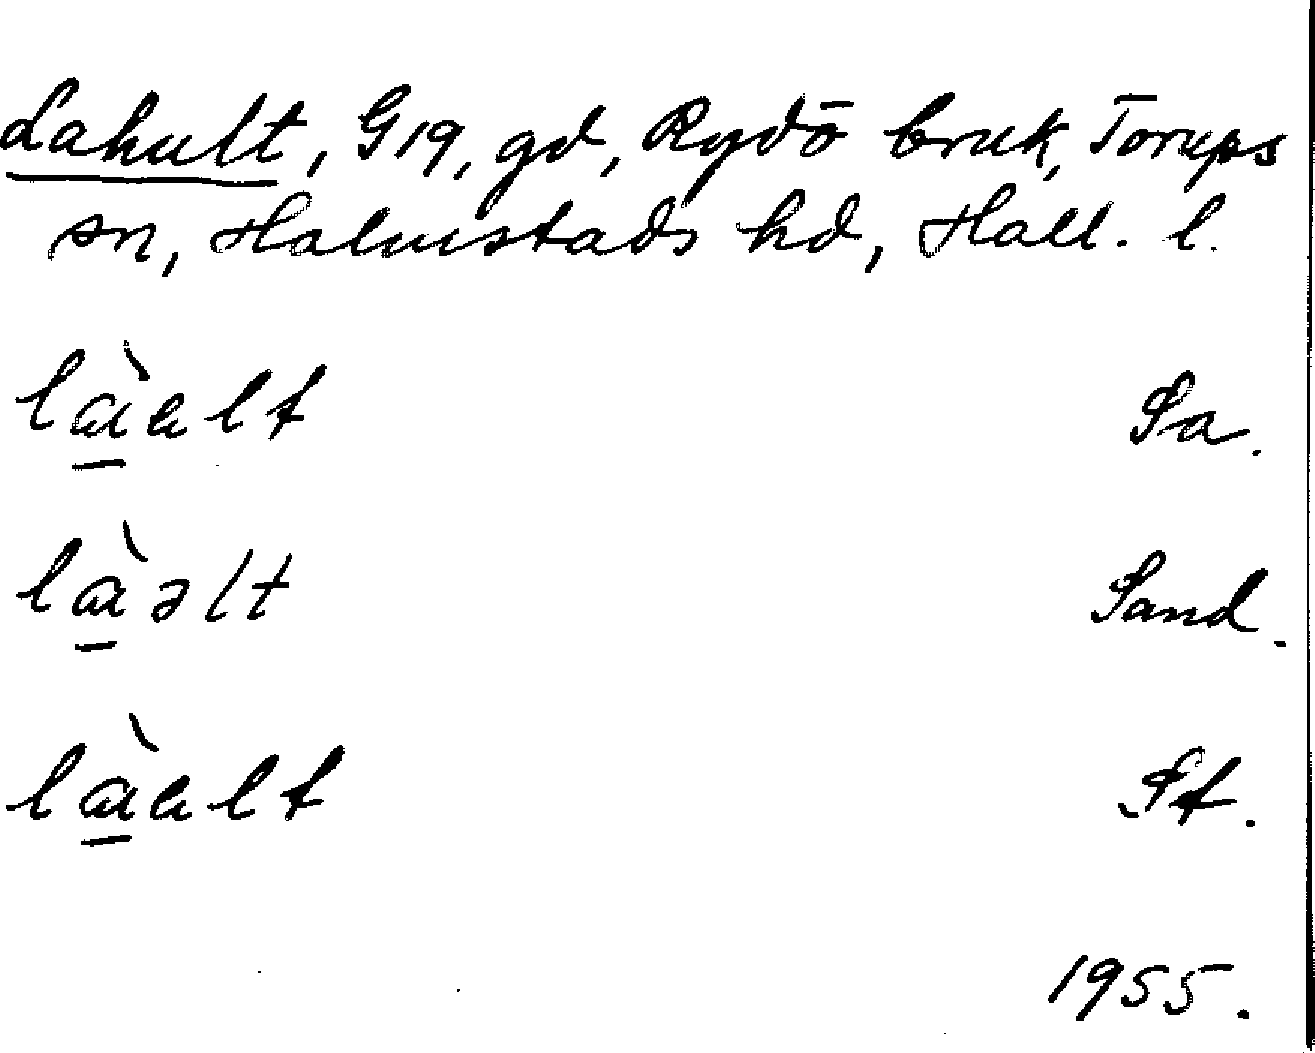 Lahult, G19, gd, Rydö bruk, Torups
sn, Halmstads hd, Hall. l.
lɑ̱̀ɐlt Sa.
lɑ̱̀əlt Sand.
lɑ̱̀ɐlt St.
1955.